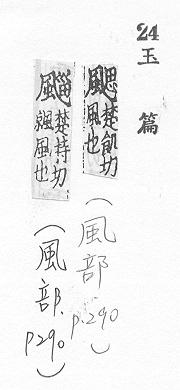 24 玉篇
颸 楚飢切
風也
(風部 p.290)
楚持切
風也
(風部. p290)